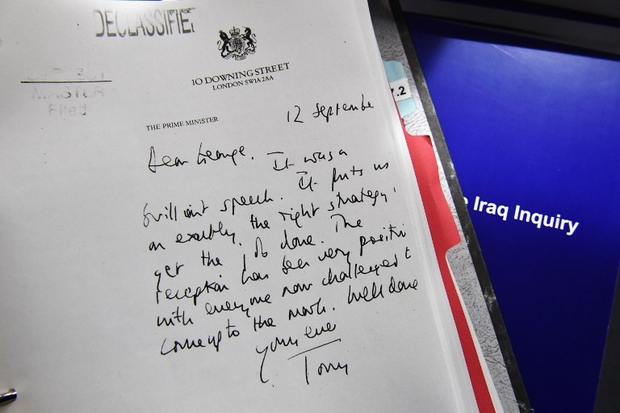 DECLASSIFIED
10 DOWNING STREET
LONDON SW1A 2AA
MASTER
Filed
THE PRIME MINISTER
12 September
Dear George. It was a
brilliant speech. It puts us
on exactly the right strategy to
get the job done. The
reception has been very positive
with everyone now challenged to
come up to the mark. Well done
Yours ever
Tony
7.2
Iraq Inquiry